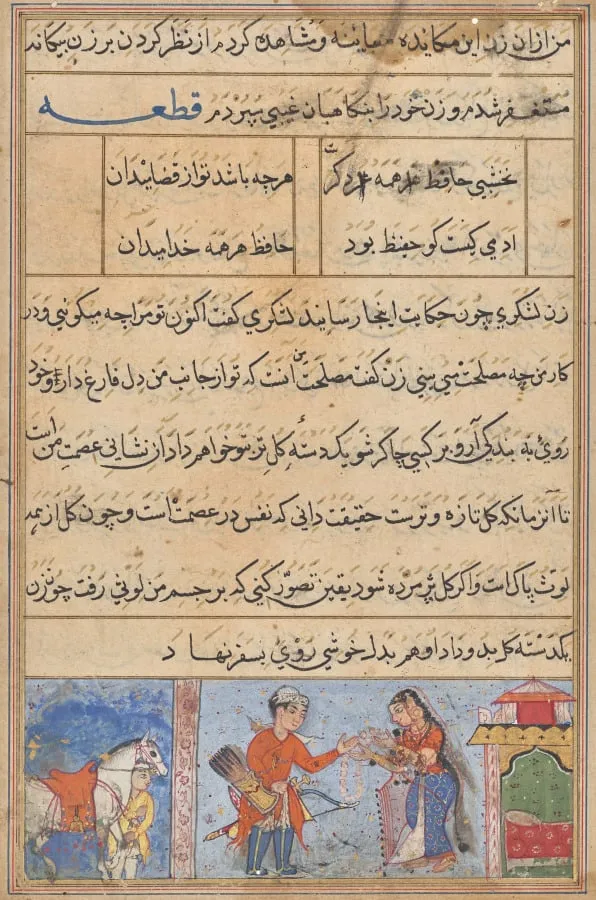 من ازان زن این مکایده معاینه و مشاهده کردم از نظر کردن بر زن بیکانه
مستغفر شدم و زن خود را بنکاهبان غیبی سپردم قطعه
نخشبی حافظ همه کرّت هرچه باشد تو از قضا میدان
ادمی کیست کو حفیظ بود حافظ هر همه خدا میدان
زن لشکری چون حکایت اینجا رسانید لشکری کفت اکنون تو مرا چه میکوئی و در
کار من چه مصلحت می بینی زن کفت مصلحت من انست که تو از جانب من دل فارغ داری و خود
روی به بندکی آر و بر کسی چاکر شو یکدسته کل تر بتو خواهم داد آن نشانی عصمت من است
تا آنزمانکه کل تازه و ترست حقیقت دانی که نفس در عصمت است و چون کل از همه
لوث پاک است و اکر کل پژمرده شود یقین تصوّر کنی که بر جسم من لوثی رفت چون زن
یکدسته کل بدو داد او هم بدل خوشی روی بسفر نهاد